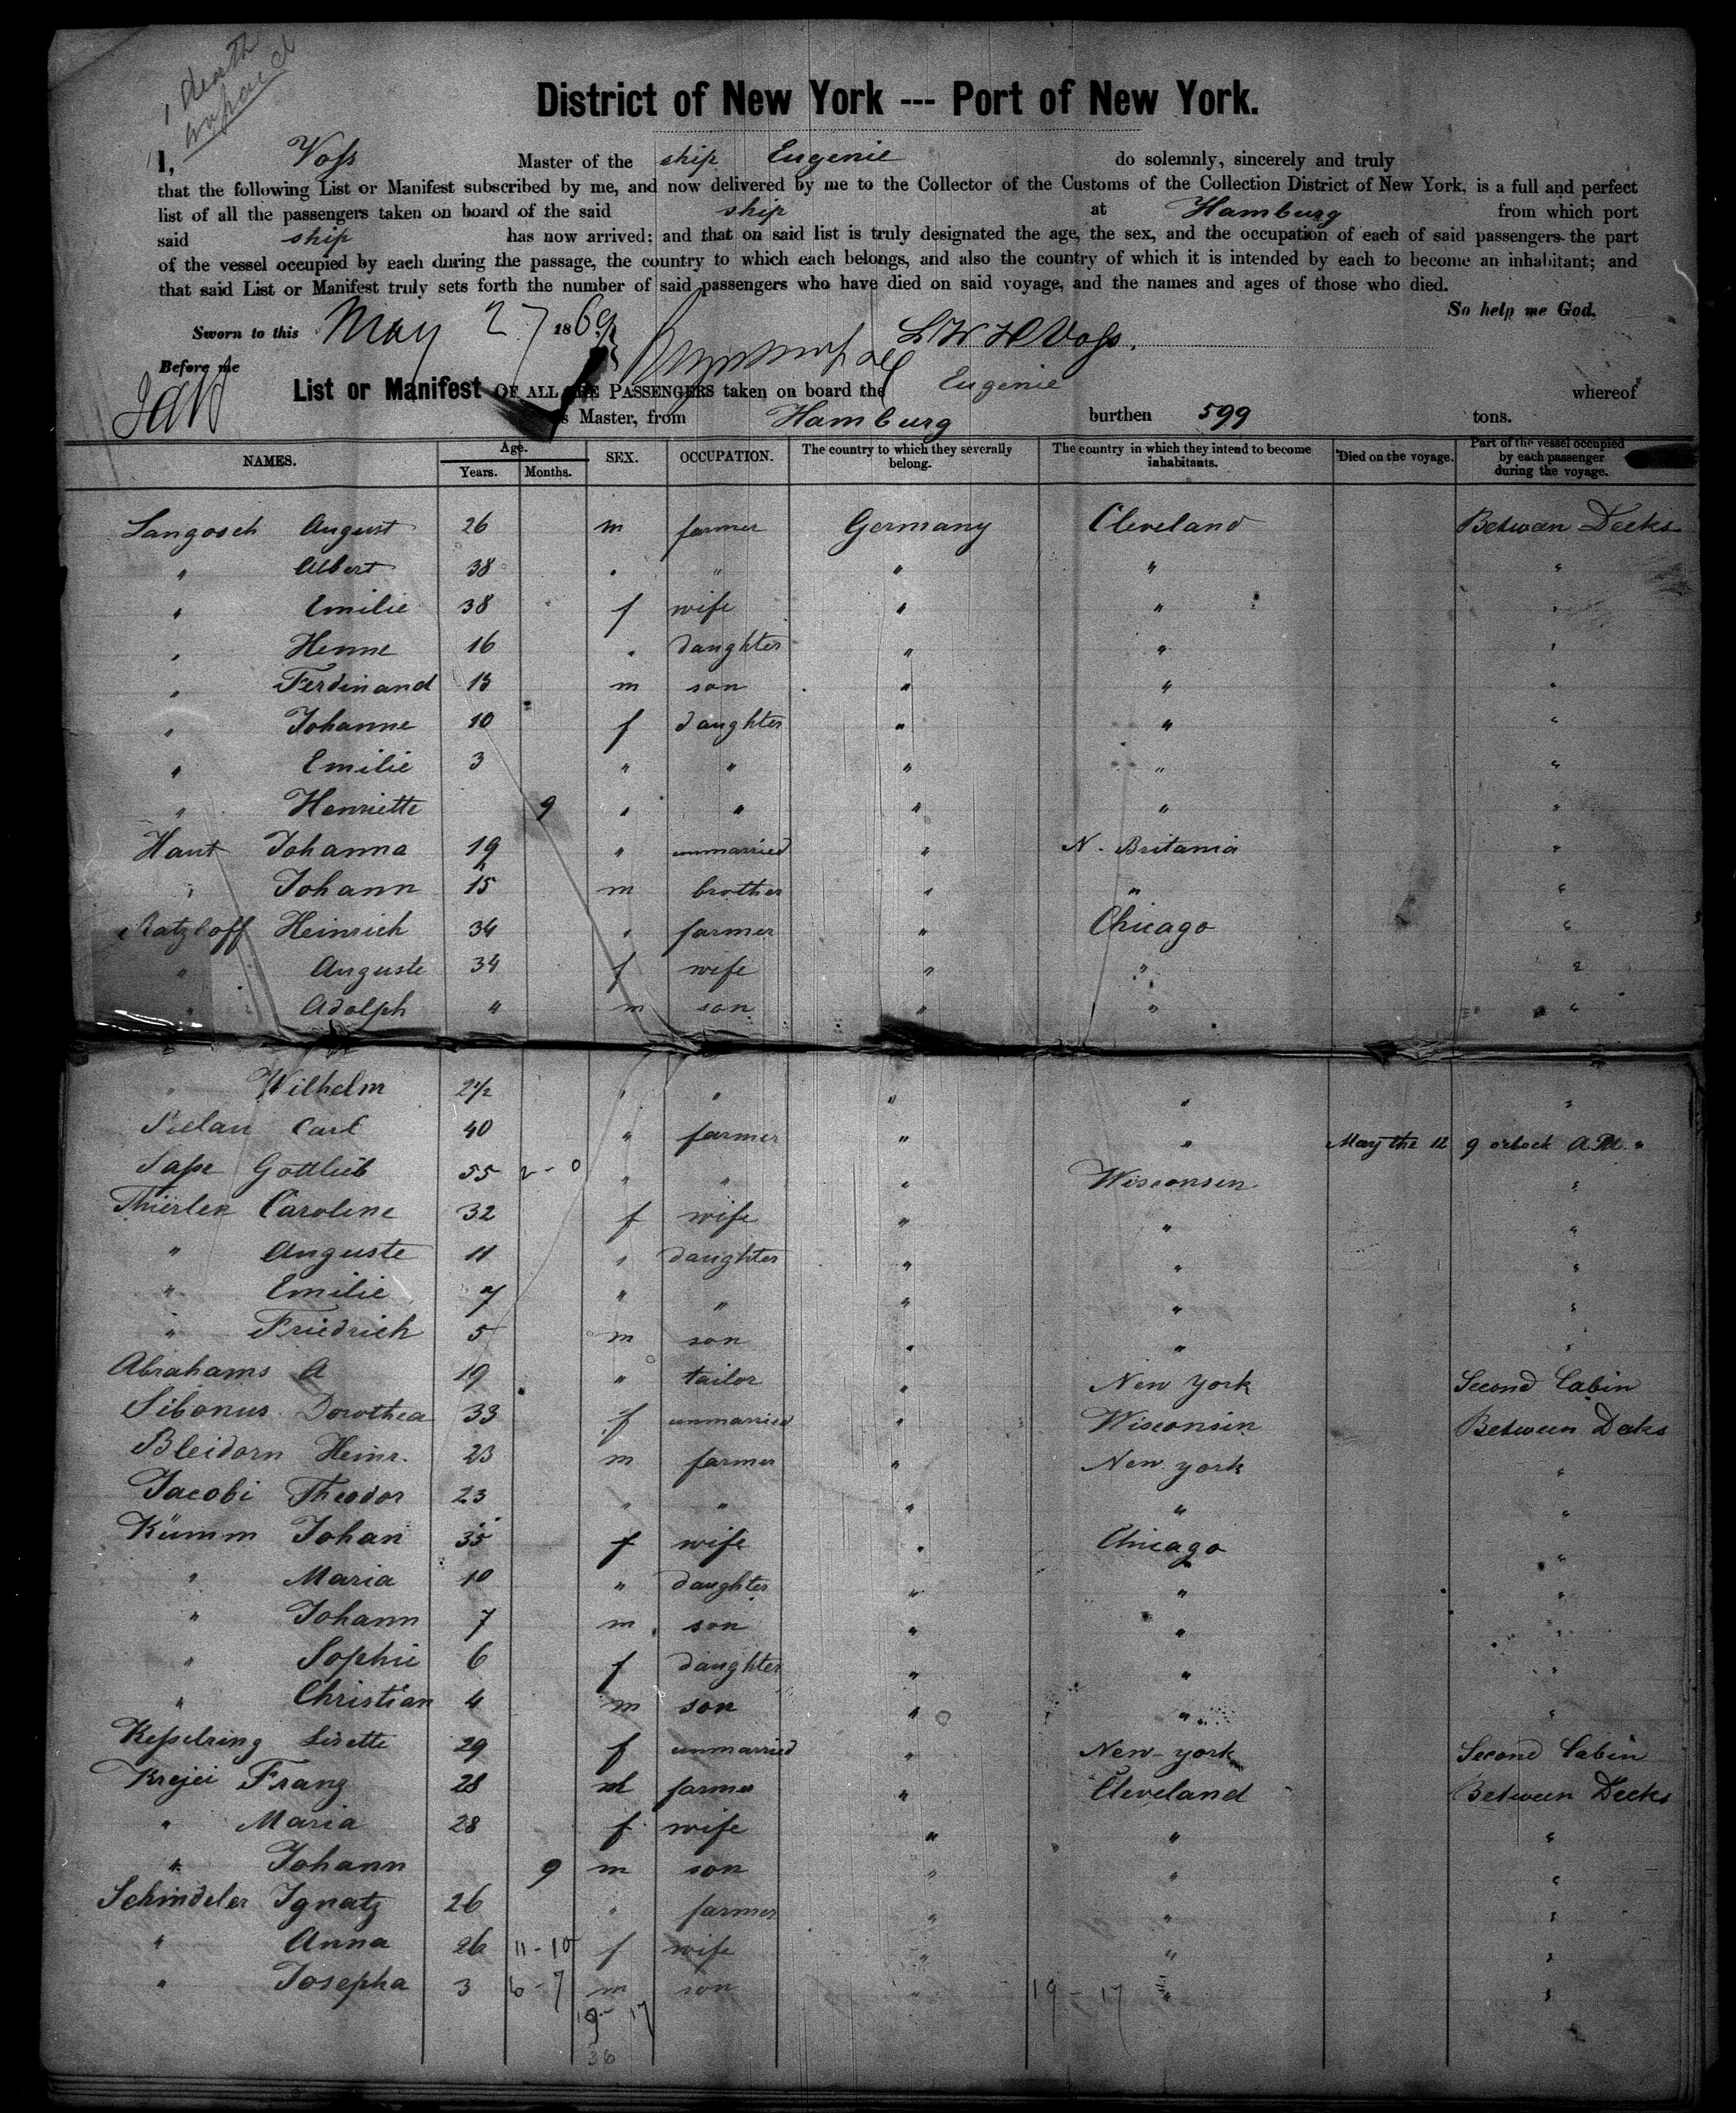 1 death
District of New York --- Port of New York.
I, Voss Master of the ship Eugenie do solemnly, sincerely and truly
that the following List or Manifest subscribed by me, and now delivered by me to the Collector of the Customs of the Collection District of New York, is a full and perfect
list of all the passengers taken on board of the said ship at Hamburg from which port
said ship has now arrived: and that on said list is truly designated the age, the sex, and the occupation of each of said passengers the part
of the vessel occupied by each during the passage, the country to which each belongs, and also the country of which it is intended by each to become an inhabitant; and
that said List or Manifest truly sets forth the number of said passengers who have died on said voyage, and the names and ages of those who died.
So help me God.
Sworn to this May 27 1869 L W H Voss.
Before me
List or Manifest OF ALL THE PASSENGERS taken on board the Eugenie whereof
is Master, from Hamburg burthen 599 tons.
NAMES. Age. Years. Months. SEX. OCCUPATION. The country to which they severally belong. The country in which they intend to become inhabitants. Died on the voyage. Part of the vessel occupied by each passenger during the voyage.
Langosch August 26 m farmer Germany Cleveland Betwen Decks
" Albert 38 " " " " "
" Emilie 38 f wife " " "
" Henne 16 " daughter " " "
" Ferdinand 13 m son " " "
" Johanne 10 f daughter " " "
" Emilie 3 " " " " "
" Henriette 9 " " " " "
Haut Johanna 19 " unmarried " N. Britania "
" Johann 15 m brother " " "
Ratzloff Heinrich 34 " farmer " Chicago "
" Auguste 34 f wife " " "
" Adolph " m son " " "
" Wilhelm 2 1/2 " " " " "
Carl 40 " farmer " " May the 12 9 o'clock A.M. "
Gottlieb 55 2 - 0 " " " Wisconsin "
Thierlen Caroline 32 f wife " " "
" Auguste 11 " daughter " " "
" Emilie 7 " " " " "
" Friedrich 5 m son " " "
Abrahams A 19 " tailor " New York Second Cabin
Sibonus Dorothea 33 f unmarried " Wisconsin Between Decks
Bleidorn Heinr. 23 m farmer " New York "
Jacobi Theodor 23 " " " " "
Kümm Johan 35 f wife " Chicago "
" Maria 10 " daughter " " "
" Johann 7 m son " " "
" Sophie 6 f daughter " " "
" Christian 4 m son " " "
Kesselring Lisette 29 f unmarried " New-york Second Cabin
Krejci Franz 28 m farmer " Cleveland Between Decks
" Maria 28 f wife " " "
" Johann 9 m son " " "
Schindeler Ignatz 26 " farmer " " "
" Anna 26 11-10 f wife " " "
" Josepha 3 6-7 m son " 19-17 " "
19- 17
36